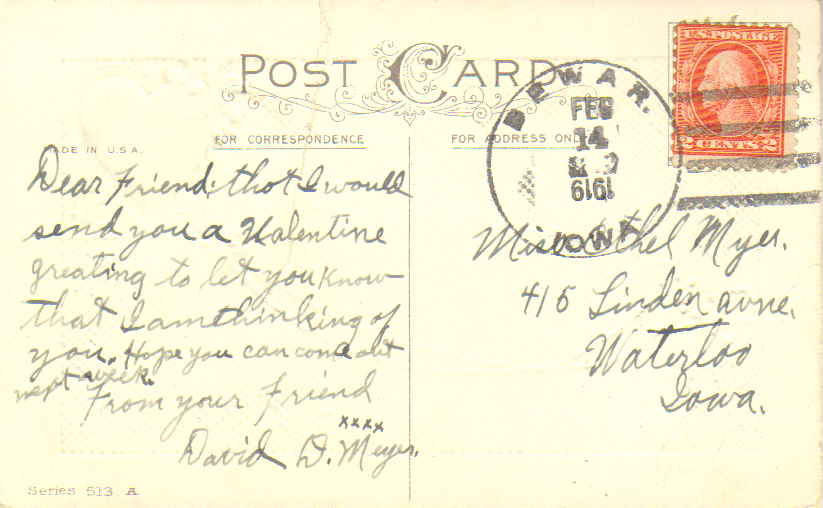 POST CARD
MADE IN U.S.A.
FOR CORRESPONDENCE
FOR ADDRESS ONLY
U.S. POSTAGE
2 CENTS 2
DEWAR.
FEB
14
1919
IOWA
Dear Friend; thot I would
send you a Valentine
greating to let you know
that I am thinking of
you. Hope you can come out
next week.
From your Friend
xxxx
David D. Meyer.
Miss Ethel Myer.
415 Linden avne.
Waterloo
Iowa.
Series 513 A